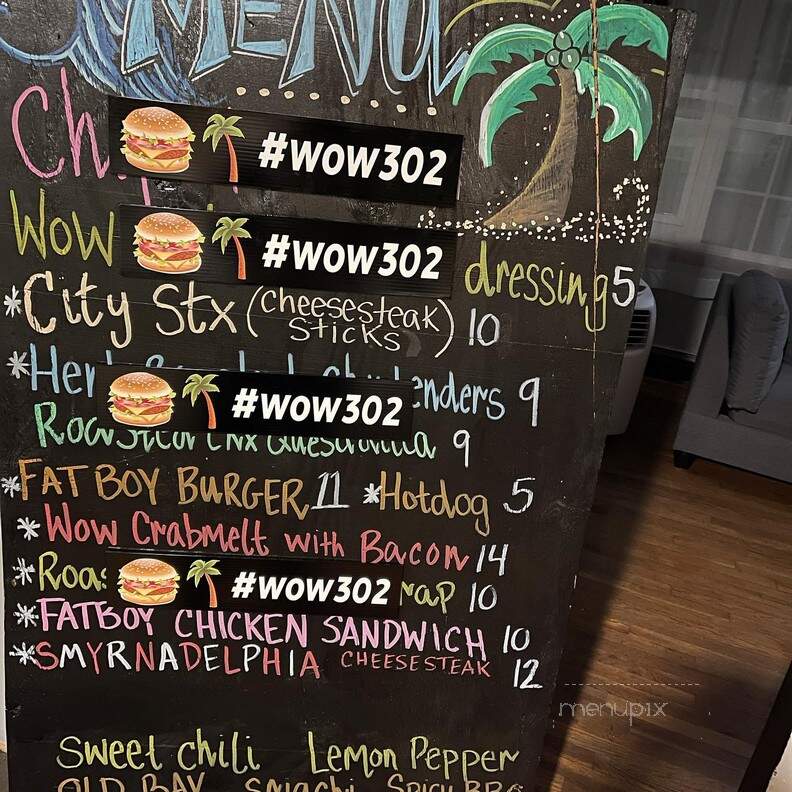 MENU
Ch
#WOW302
WOW
#WOW302
dressing 5
*City Stx (cheesesteak sticks) 10
#WOW302
enders 9
9
*FATBOY BURGER 11 *Hotdog 5
*Wow Crabmelt with Bacon 14
#WOW302
10
*FATBOY CHICKEN SANDWICH 10
*SMYRNADELPHIA CHEESESTEAK 12
menupix
Sweet chili Lemon Pepper
OLD BAY Spicy BBQ